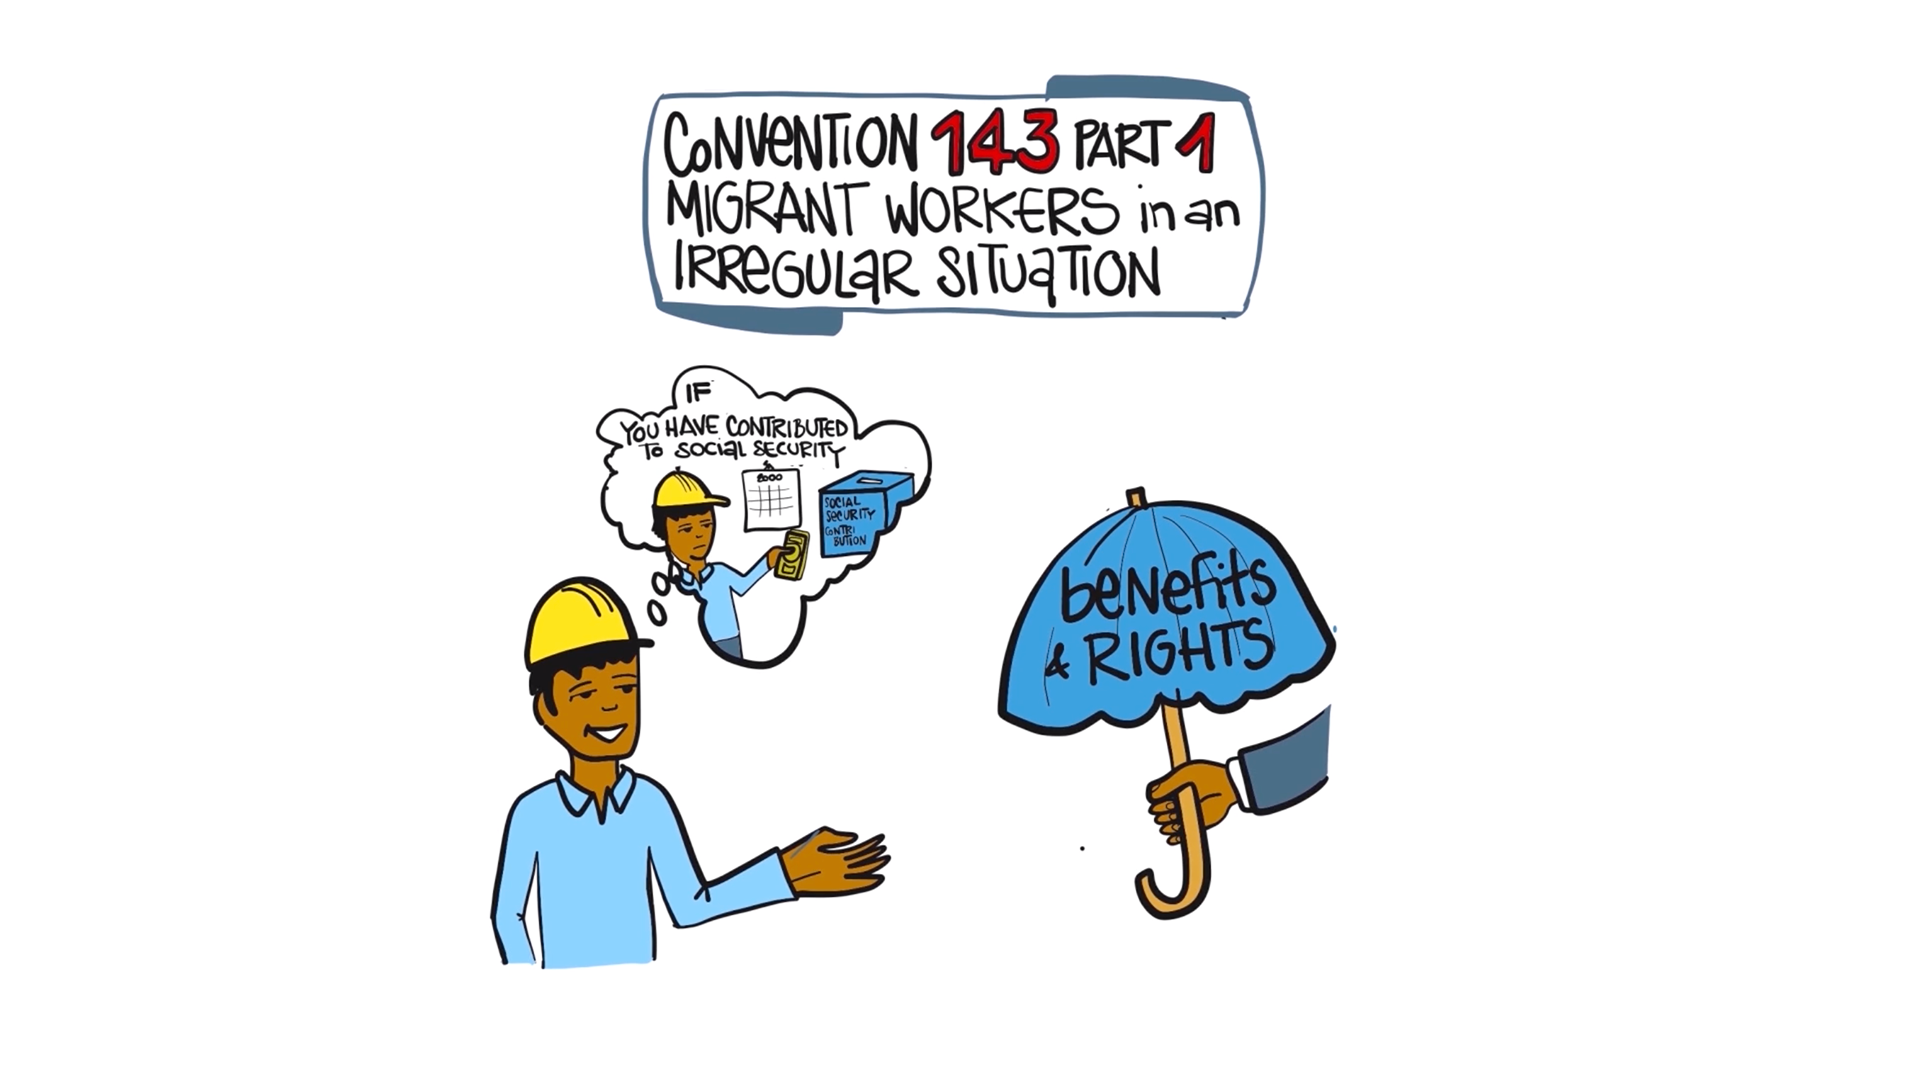 CONVENTION 143 PART 1
MIGRANT WORKERS in an
IRREGULAR SITUATION
IF
YOU HAVE CONTRIBUTED
TO SOCIAL SECURITY
2000
SOCIAL
SECURITY
CONTRI
BUTION
benefits
& RIGHTS